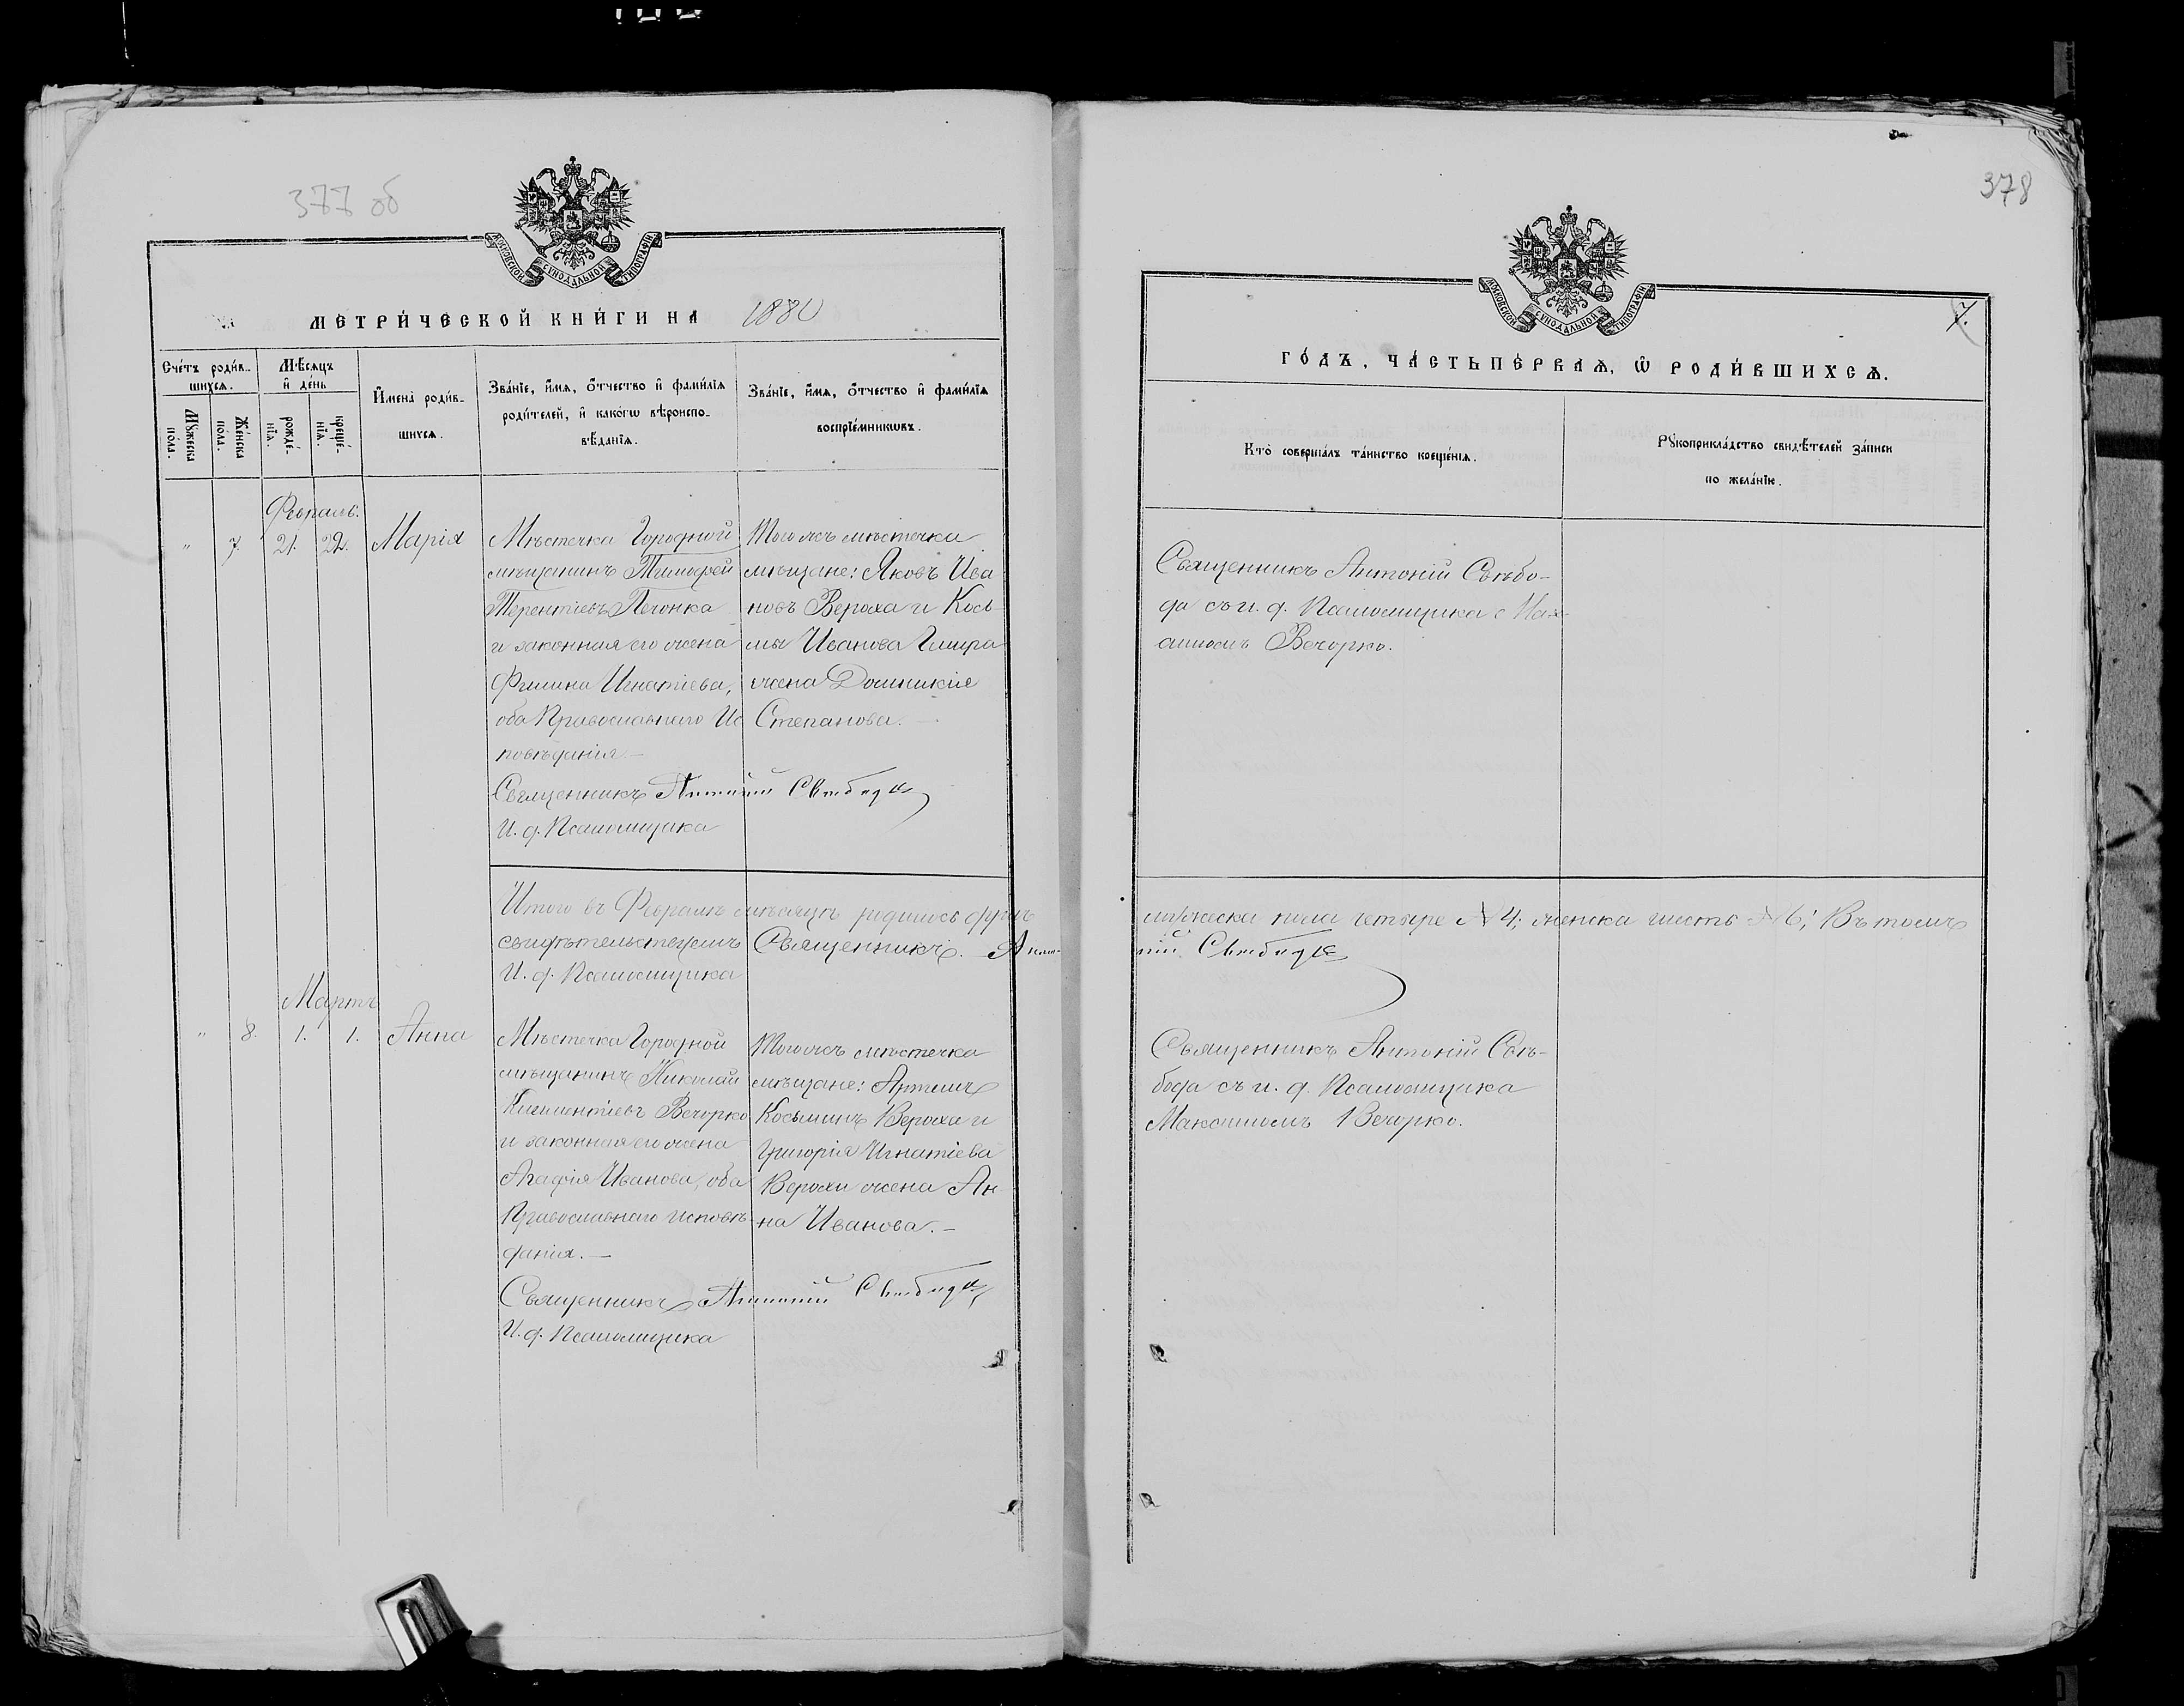 377 об
МОСКОВСКОЙ СѴНОДАЛЬНОЙ ТИПОГРАФІИ
МЕТРИ́ЧЕСКОЙ КНИ́ГИ НА 1880
Сче́тъ роди́в-
шихся.
Мѣ́сяцъ
и҆ де́нь
Мꙋ́жеска
по́ла.
Же́нска
по́ла.
рожде́-
нїѧ.
креще́-
нїѧ.
И҆мена̀ роди́в-
шихся.
Зва́нїе, и҆́мѧ, ѻ҆́тчество и҆ фами́лїѧ
роди́телей, и҆ како́гѡ вѣроиспо-
вѣ́данїѧ.
Зва́нїе, и҆́мѧ, ѻ҆́тчество и҆ фами́лїѧ
воспрїе́мникѡвъ.
Февраль.
" 7. 21. 22. Марія
Мѣстечка Городной
мѣщанинъ Тимофей
Терентіевъ Пегонка
и законная его жена
Игнатіева,
оба Православнаго Ис
повѣданія.—
Священникъ Антоній Свѣбода
И. д. Псаломщика
Того жъ мѣстечка
мѣщане: Яковъ Ива
новъ Вероха и Кось-
мы Иванова
жена Домникія
Степанова.—
Итого въ Февралѣ мѣсяцѣ родилось
свидѣтельствуемъ Священникъ. Анто-
И. д. Псаломщика
Мартъ
" 8. 1. 1. Анна
Мѣстечка Городной
мѣщанинъ Николай
Климентіевъ Вечорко
и законная его жена
Агафія Иванова, оба
Православнаго исповѣ-
данія.—
Священникъ Антоній Свѣбода
И. д. Псаломщика
Того жъ мѣстечка
мѣщане: Артемъ
Косьминъ Вероха и
Григорія Игнатіева
Верохи жена Ан-
на Иванова.—
378
МОСКОВСКОЙ СѴНОДАЛЬНОЙ ТИПОГРАФІИ
7.
ГО́ДЪ, ЧА́СТЬ ПЕ́РВАѦ, Ѽ РОДИ́ВШИХСѦ.
Кто̀ соверша́лъ та́инство креще́нїѧ.
Рꙋкоприкла́дство свидѣ́телей за́писи
по жела́нїю.
Священникъ Антоній Свѣбо-
да съ и. д. Псаломщика
Вечорко.
мужеска пола четыре N 4; женска шесть N 6; Въ томъ
ній Свѣбода
Священникъ Антоній Свѣ-
бода съ и. д. Псаломщика
Максимомъ Вечорко.